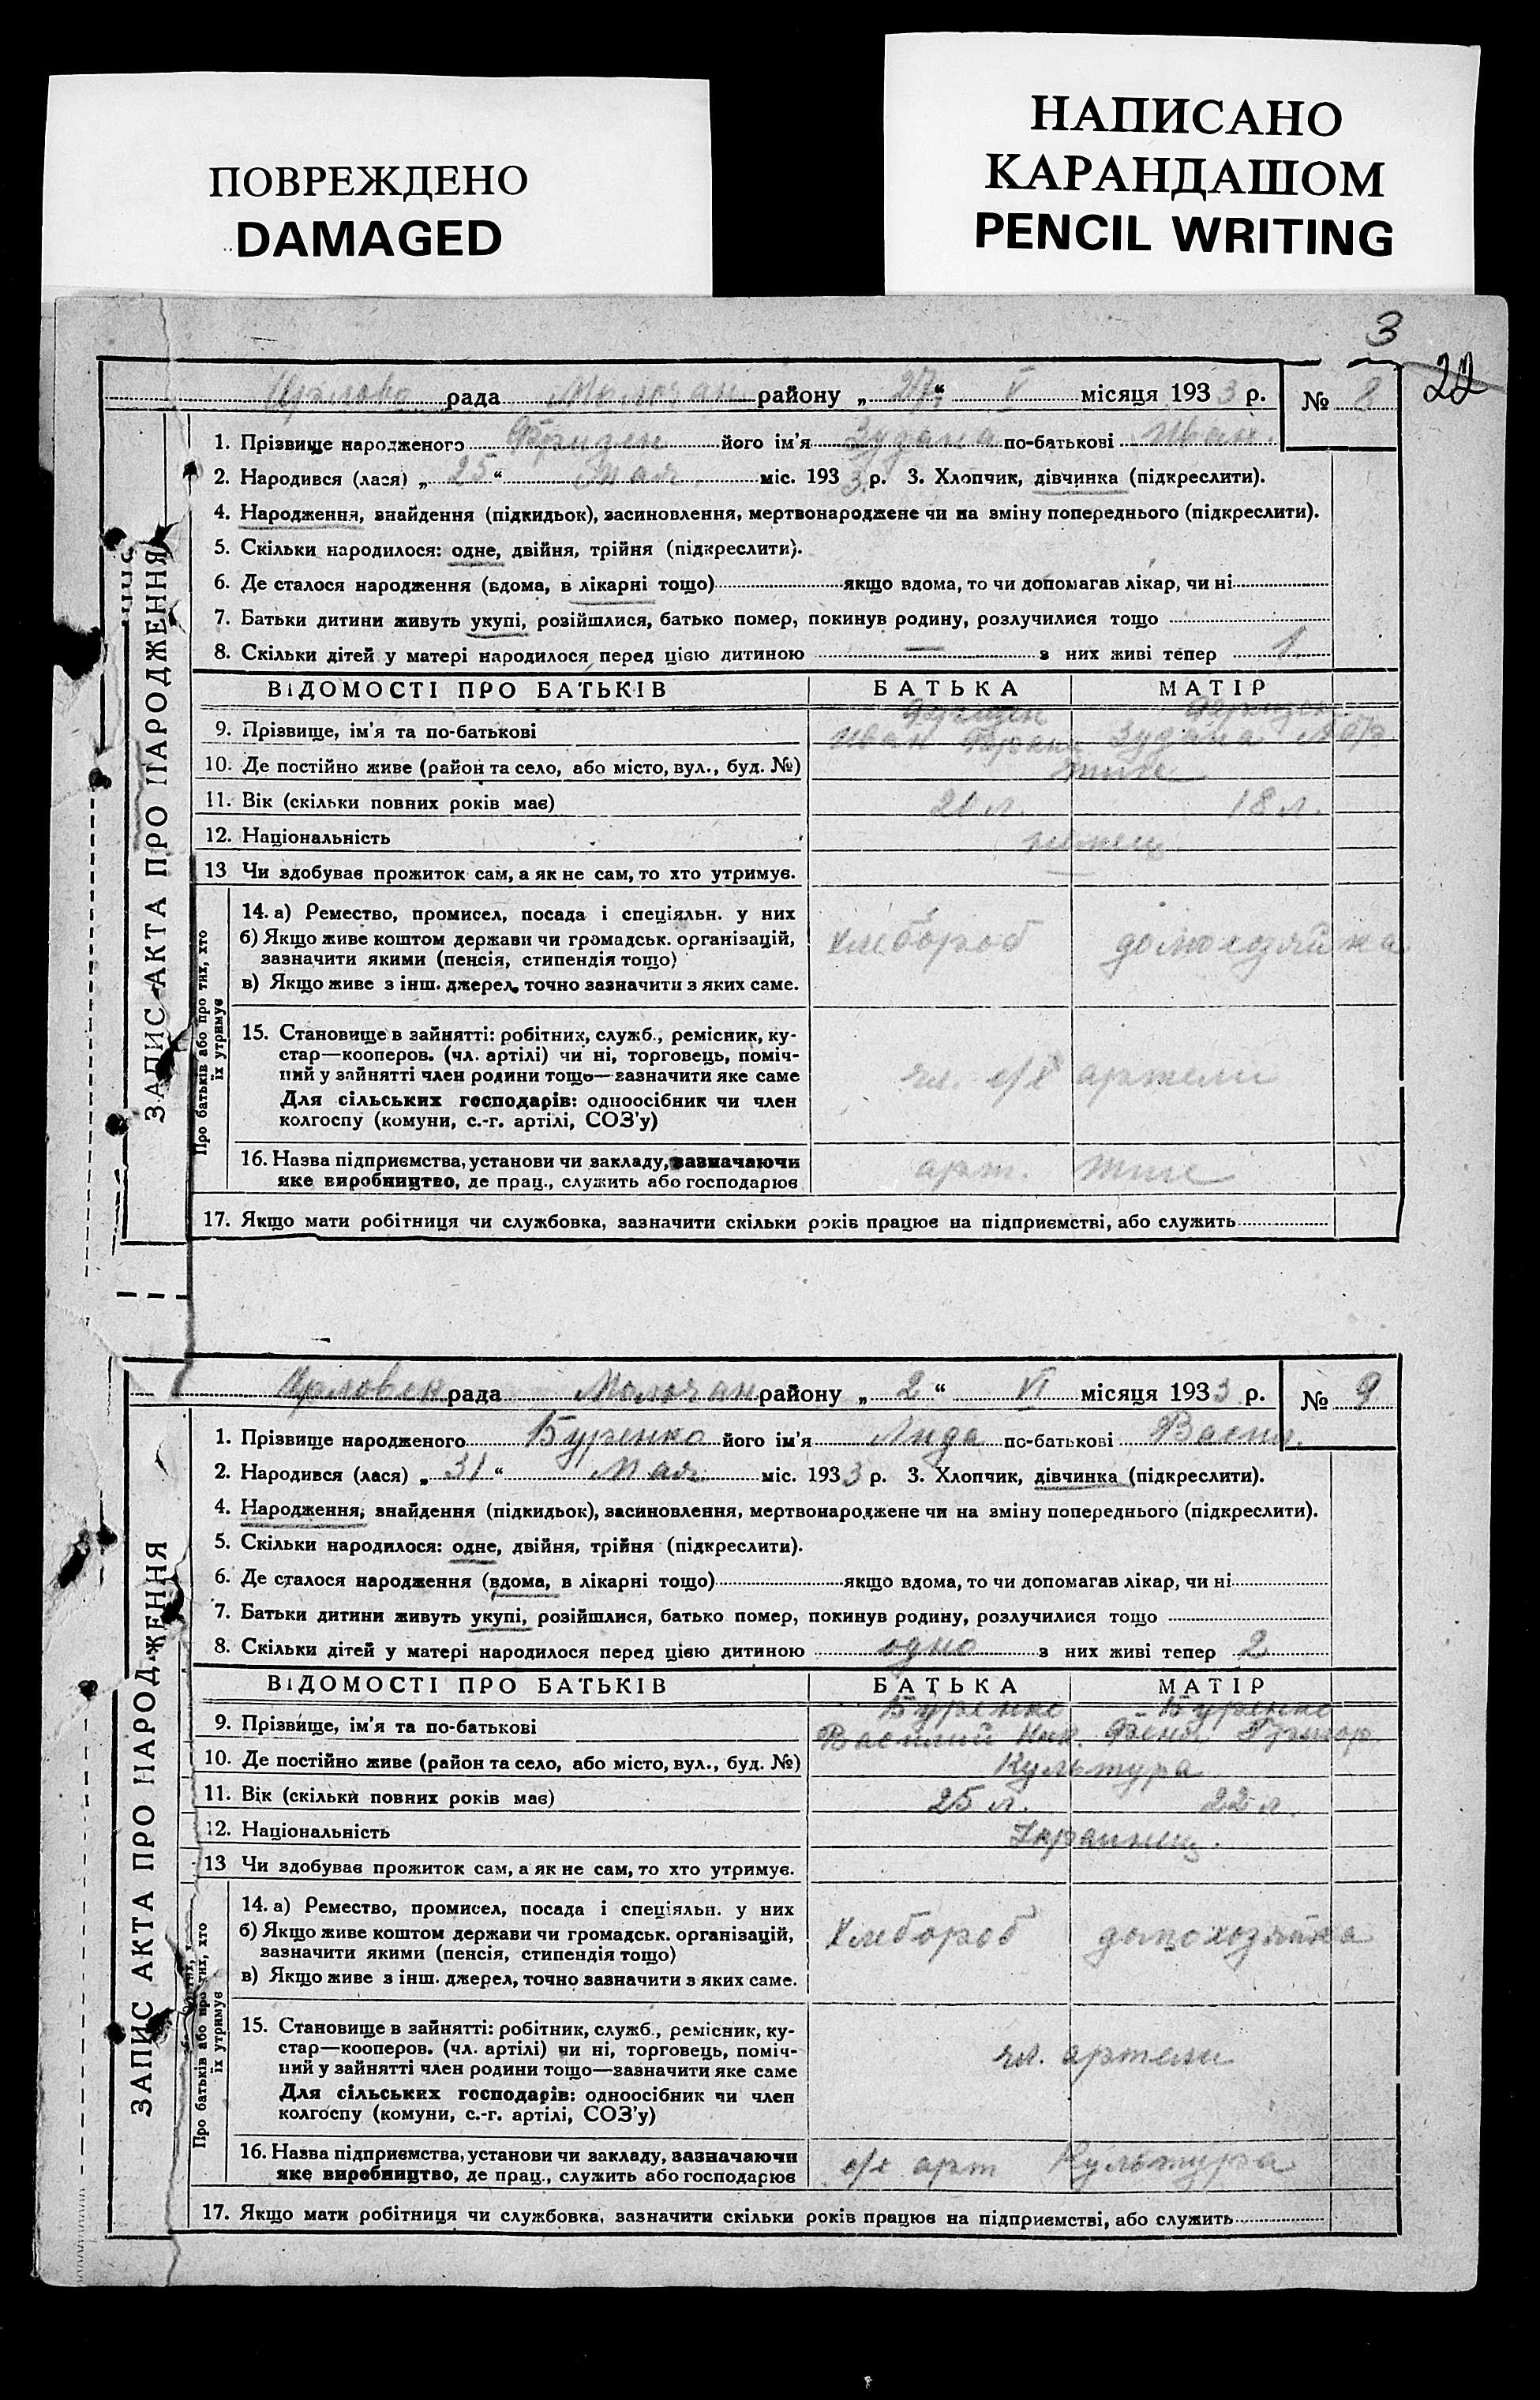 ПОВРЕЖДЕНО
DAMAGED
НАПИСАНО
КАРАНДАШОМ
PENCIL WRITING
3
22
ЗАПИС АКТА ПРО НАРОДЖЕННЯ
рада Молочан району „27“ V місяця 1933 р. № 8
1. Прізвище народженого його ім'я по-батькові Иван.
2. Народився (лася) „25“ Мая міс. 1933 р. 3. Хлопчик, дівчинка (підкреслити).
4. Народження, знайдення (підкидьок), засиновлення, мертвонароджене чи на зміну попереднього (підкреслити).
5. Скільки народилося: одне, двійня, трійня (підкреслити).
6. Де сталося народження (вдома, в лікарні тощо) якщо вдома, то чи допомагав лікар, чи ні
7. Батьки дитини живуть укупі, розійшлися, батько помер, покинув родину, розлучилися тощо
8. Скільки дітей у матері народилося перед цією дитиною — з них живі тепер 1
ВІДОМОСТІ ПРО БАТЬКІВ БАТЬКА МАТІР
9. Прізвище, ім'я та по-батькові Иван
10. Де постійно живе (район та село, або місто, вул., буд. №)
11. Вік (скільки повних років має) 21 л. 18 л.
12. Національність немец
13 Чи здобуває прожиток сам, а як не сам, то хто утримує.
Про батьків або про тих, хто їх утримує
14. а) Ремество, промисел, посада і спеціяльн. у них
б) Якщо живе коштом держави чи громадськ. організацій, хлебороб домохозяйка
зазначити якими (пенсія, стипендія тощо)
в) Якщо живе з інш. джерел, точно зазначити з яких саме.
15. Становище в зайнятті: робітник, служб., ремісник, ку-
стар—кооперов. (чл. артілі) чи ні, торговець, поміч-
ний у зайнятті член родини тощо—зазначити яке саме чл. с/х артели
Для сільських господарів: одноосібник чи член
колгоспу (комуни, с.-г. артілі, СОЗ'у)
16. Назва підприємства, установи чи закладу, зазначаючи арт.
яке виробництво, де прац., служить або господарює
17. Якщо мати робітниця чи службовка, зазначити скільки років працює на підприємстві, або служить
ЗАПИС АКТА ПРО НАРОДЖЕННЯ
рада Молочан району „2“ VI місяця 1933 р. № 9
1. Прізвище народженого Буренко його ім'я Лида по-батькові Васил.
2. Народився (лася) „31“ Мая міс. 1933 р. 3. Хлопчик, дівчинка (підкреслити).
4. Народження, знайдення (підкидьок), засиновлення, мертвонароджене чи на зміну попереднього (підкреслити).
5. Скільки народилося: одне, двійня, трійня (підкреслити).
6. Де сталося народження (вдома, в лікарні тощо) якщо вдома, то чи допомагав лікар, чи ні
7. Батьки дитини живуть укупі, розійшлися, батько помер, покинув родину, розлучилися тощо
8. Скільки дітей у матері народилося перед цією дитиною одно з них живі тепер 2
ВІДОМОСТІ ПРО БАТЬКІВ БАТЬКА МАТІР
Буренко Буренко
9. Прізвище, ім'я та по-батькові Василий Ник. Григор
10. Де постійно живе (район та село, або місто, вул., буд. №) Культура
11. Вік (скільки повних років має) 25 л. 22 л.
12. Національність Украинец.
13 Чи здобуває прожиток сам, а як не сам, то хто утримує.
Про батьків або про тих, хто їх утримує
14. а) Ремество, промисел, посада і спеціяльн. у них
б) Якщо живе коштом держави чи громадськ. організацій, хлебороб домохозяйка
зазначити якими (пенсія, стипендія тощо)
в) Якщо живе з інш. джерел, точно зазначити з яких саме.
15. Становище в зайнятті: робітник, служб., ремісник, ку-
стар—кооперов. (чл. артілі) чи ні, торговець, поміч- чл. артели
ний у зайнятті член родини тощо—зазначити яке саме
Для сільських господарів: одноосібник чи член
колгоспу (комуни, с.-г. артілі, СОЗ'у)
16. Назва підприємства, установи чи закладу, зазначаючи с/х арт Культура
яке виробництво, де прац., служить або господарює
17. Якщо мати робітниця чи службовка, зазначити скільки років працює на підприємстві, або служить